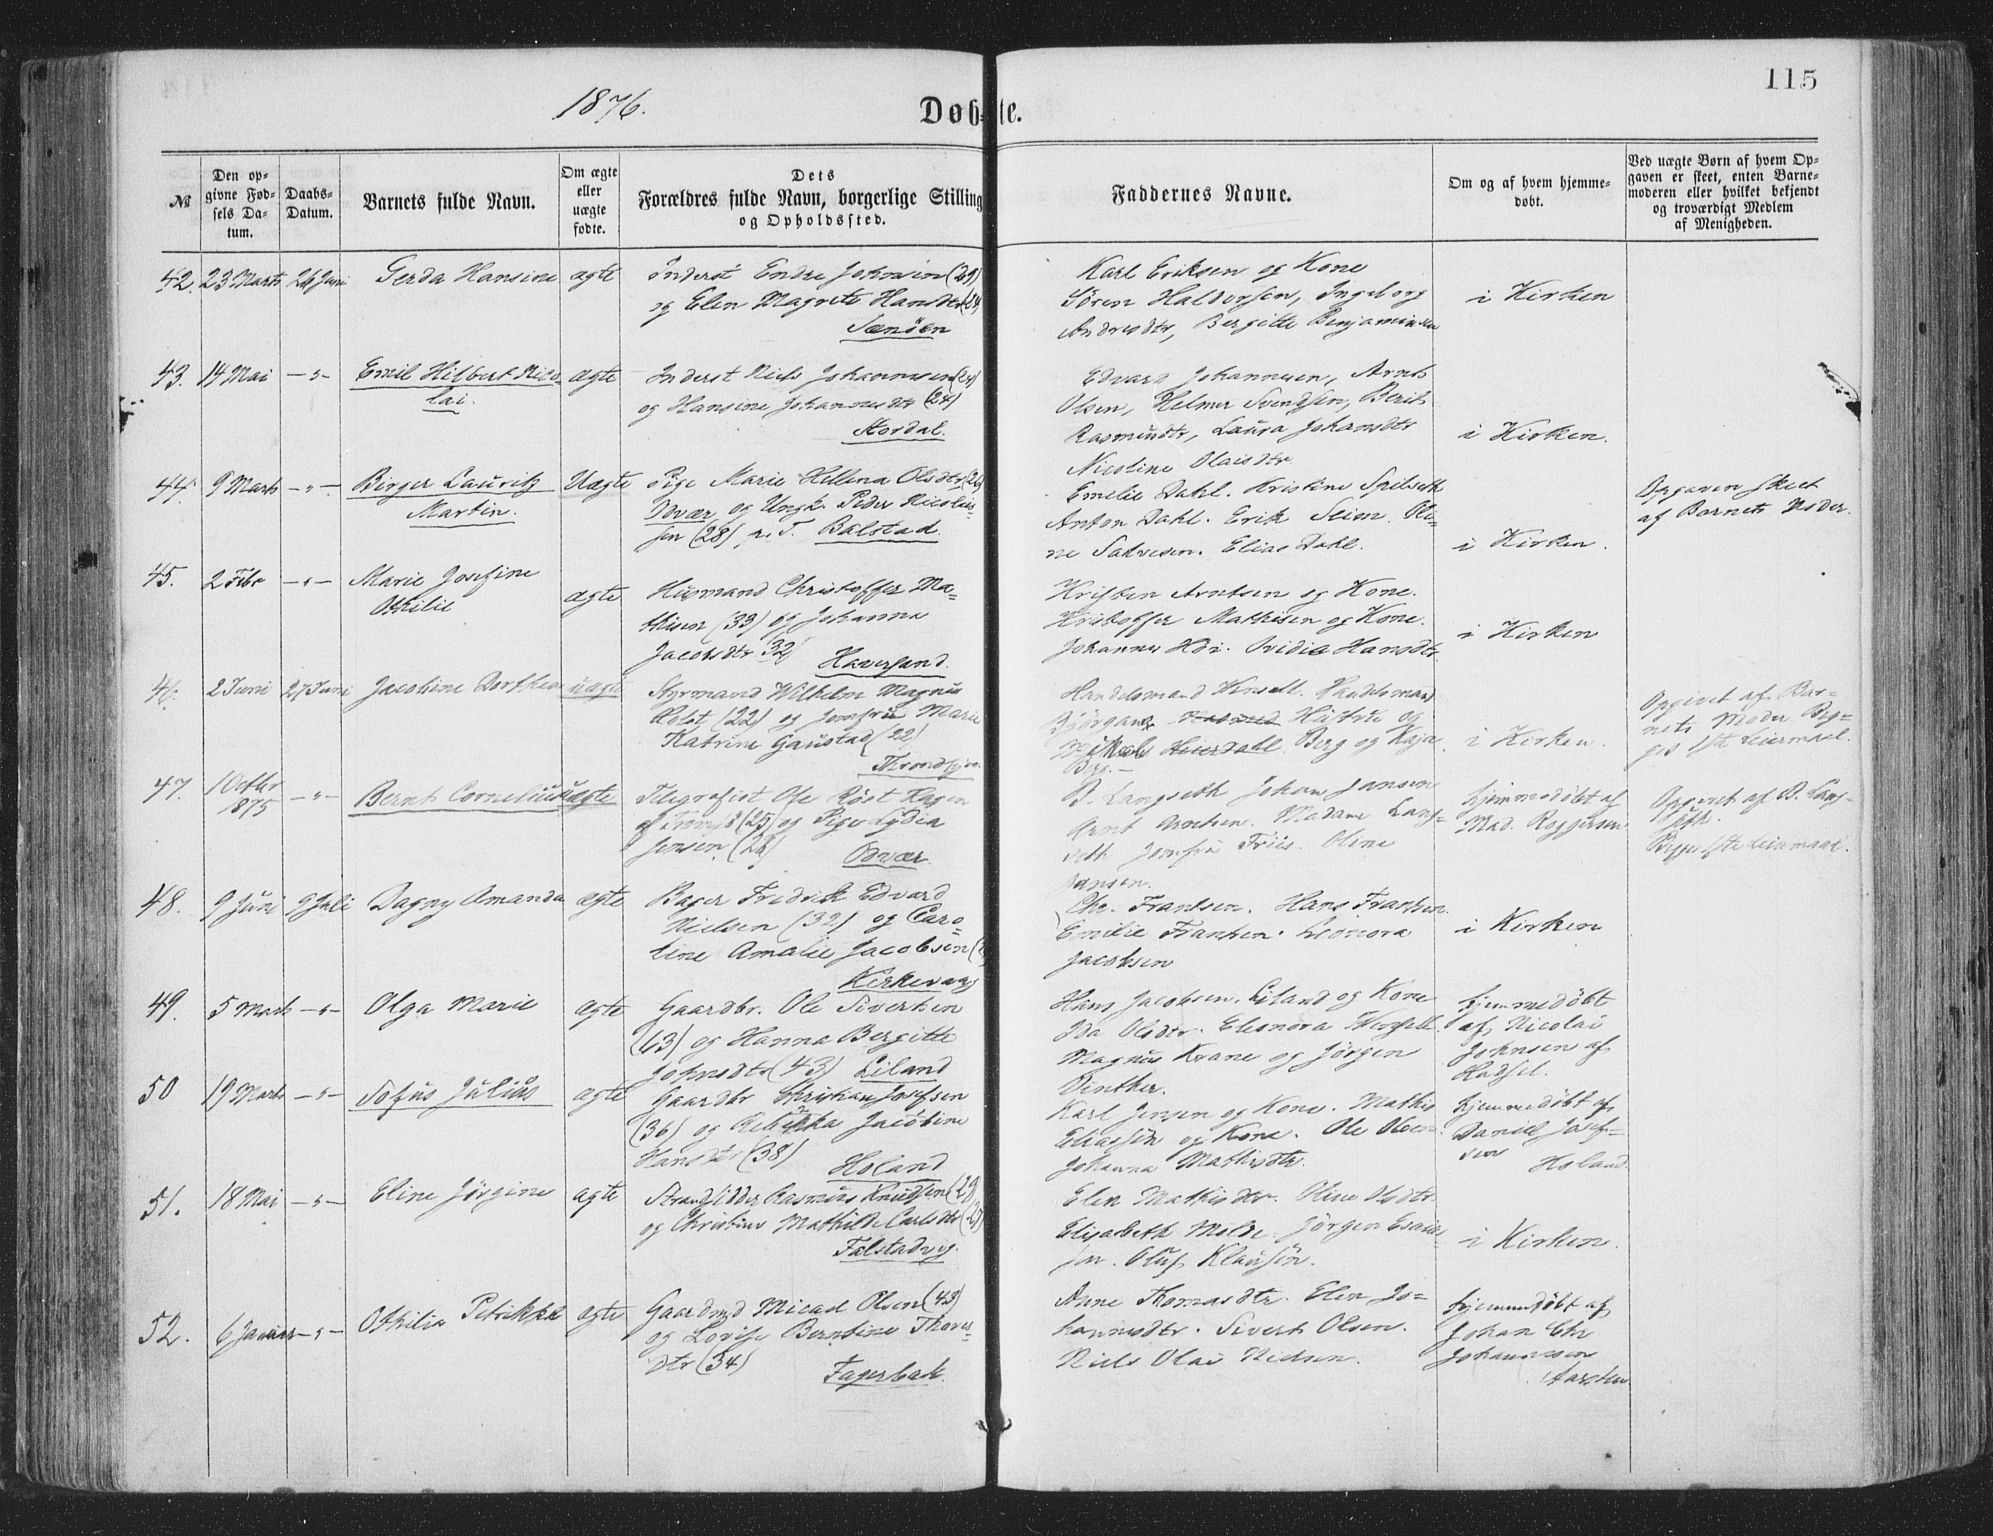 115
1876.
Døbte.
№
Den opgivne Fødsels Datum.
Daabs-Datum.
Barnets fulde Navn.
Om ægte eller uægte fødte.
Dets Forældres fulde Navn, borgerlige Stilling og Opholdssted.
Faddernes Navne.
Om og af hvem hjemmedøbt.
Ved uægte Børn af hvem Opgaven er skeet, enten Barnemoderen eller hvilket bekjendt og troværdigt Medlem af Menigheden.
42. 23 Marts 26 Juni Gerda Hansine ægte
Inderst Endre Johnsen (29)
og Elen Magrete Hansdtr
Sandøen
Karl Eriksen og Kone
Sören Haldorsen, Ingeborg
Andrsdtr, Bergitte Benjaminsen
i Kirken
43. 14 Mai —"— Emil Hilbert Nico-
lai.
ægte
Inderst Niels Johannesen
og Hansine Johannesdtr (24)
Stordal.
Edvard Johannesen, Arnt
Olsen, Helmer Svendsen, Berit
Rasmusdtr, Laura Johansdtr
Nicoline Olaisdtr.
i Kirken.
44. 9 Marts —"— Birger Lauritz
Martin.
Uægte
Pige Marie Hellena Olsdtr
og Ungk. Peder Nicolais-
sen (28) p. T. Balstad.
Emelie Dahl. Kristine
Anton Dahl. Erik Seim. Oli-
ne Salvesen. Elias Dahl.
i Kirken.
Opgaven skeet
af Barnets Moder.
45. 2 Febr —"— Marie Josefine
Othilie
ægte
Husmand Christoffer Ma-
thisen (33) og Johanna
Jacobsdtr 32)
Haversand.
Kristen Arntsen og Kone.
Kristoffer Mathisen og Kone.
Johannes Hdr. Ovidia Hansdtr.
i Kirken
46. 2 Juni 27 Juni Jacobine Dorthea uægte
Styrmand Wilhelm Magnus
Holst (22) og Jomfru Marie
Katrine Gaustad (22)
Throndhjem
Handelsmand
Hustru og
Berg og Kaja
Berg.—
i Kirken.
Opgivet af Bar-
nets Moder. Beg-
ges 1ste Leiermaal.
47. 1 Octbr
1875
—"— Bernt Cornelius uægte
Telegrafist Ole Röst Hagen
(25) og Pige Lydia
Jensen (26)
B. Langseth Johan Jansen
Arnt Arntsen. Madame Lang-
seth Jomfru Friis. Oline
Jansen.
hjemmedöbt af
Mad. Roggersen
Opgivet af B. Lang-
seth.
Begges 1ste Leiermaal.
48. 9 Juni 9 Juli Dagny Amanda ægte
Bager Fredrik Edvard
Nielsen (32) og Caro-
line Amalie Jacobsen
Kirkevaag
Chr. Frantsen. Hans Frantsen.
Emilie Frantsen. Leonora
Jacobsen
i Kirken
49. 5 Marts —"— Olga Marie ægte
Gaardbr. Ole Sivertsen
(63) og Hanna Bergitte
Johnsdtr (43) Liland
Hans Jacobsen. Liland og Kone
Ida Olsdtr. Eleonora
Magnus Krane og Jörgen
Vinther.
hjemmedöbt
af Nicolai
Johnsen af
Hadsel.
50 19 Marts —"— Tofus Julius ægte
Gaardbr Christian Josefsen
(36) og Rebekka Jacobine
Hansdtr (38)
Holand
Karl Jensen og Kone. Mathis
Eliassen og Kone. Ole Olsen
Johanna Mathisdtr.
hjemmedöbt af
Daniel Josef-
sen
Holand.
51. 18 Mai —"— Eline Jörgine ægte
Strandsidder Rasmus Knudsen (29)
og Christine Mathilde Carlsdtr (27)
Falstadvg.
Elen Mathisdtr. Oline Olsdtr.
Elisabeth Molde. Jörgen Esaias-
sen. Oluf Klausön.
i Kirken.
52. 6 Januar —"— Othilia Petrikka ægte
Gaardmd Micael Olsen (43)
og Lovise Berntine Thores-
dtr (34)
Fagerbak.
Anne Thomasdtr. Elen Jo-
hannesdtr. Sivert Olsen.
Niels Olai Nielsen.
hjemmedöbt af
Johan Chr
Johannesen